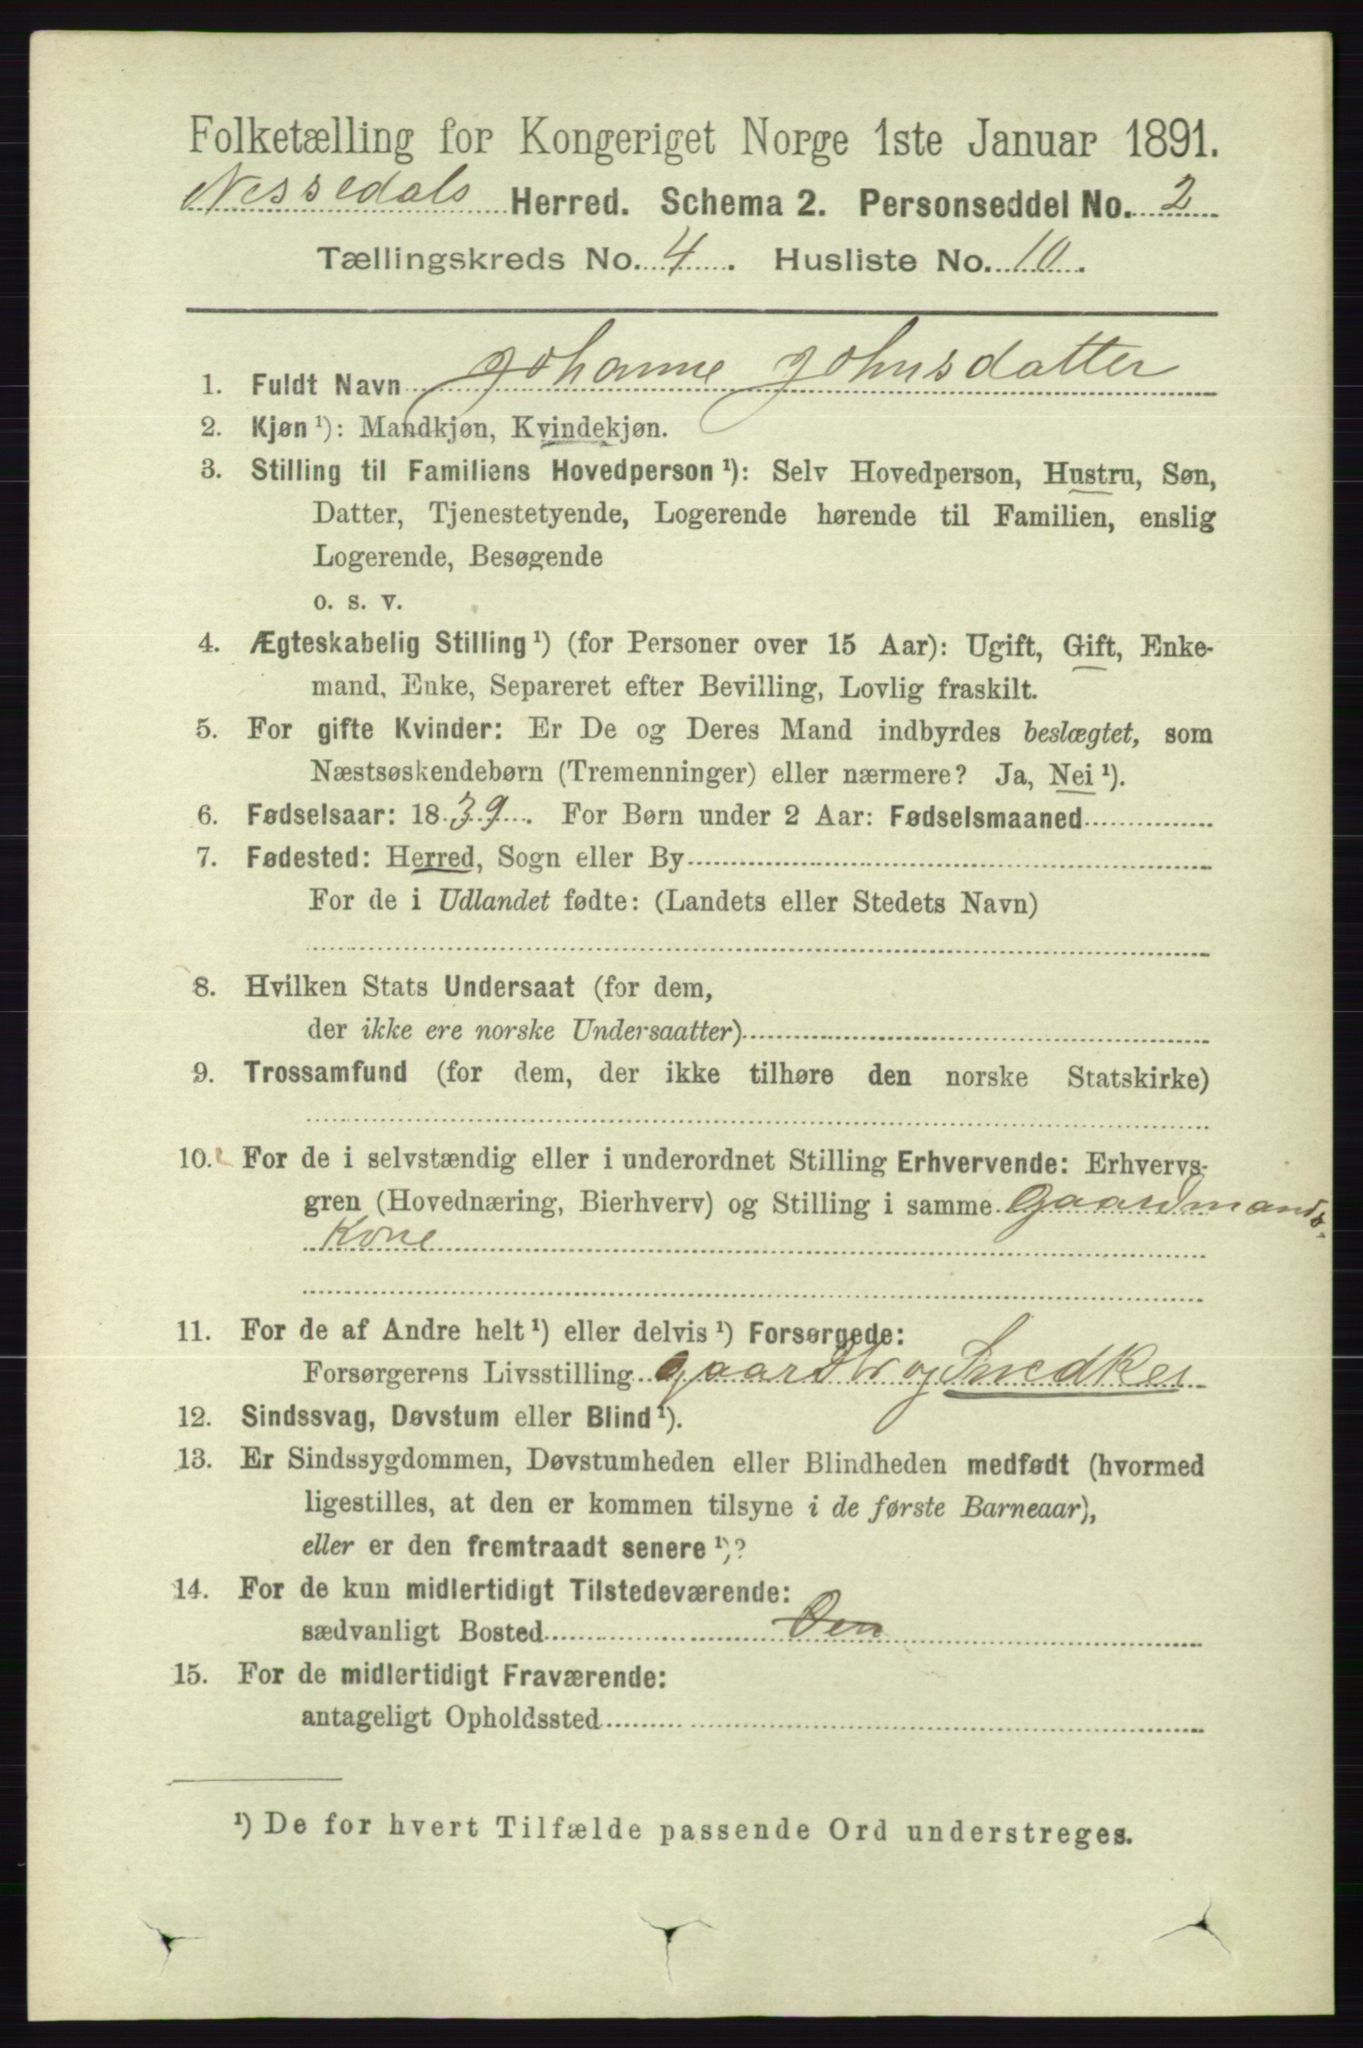 Folketælling for Kongeriget Norge 1ste Januar 1891.
Nessedals Herred. Schema 2. Personseddel No. 2
Tællingskreds No. 4. Husliste No. 10.
1. Fuldt Navn Johanne Johnsdatter
2. Kjøn ¹): Mandkjøn, Kvindekjøn.
3. Stilling til Familiens Hovedperson ¹): Selv Hovedperson, Hustru, Søn,
Datter, Tjenestetyende, Logerende hørende til Familien, enslig
Logerende, Besøgende
o. s. v.
4. Ægteskabelig Stilling ¹) (for Personer over 15 Aar): Ugift, Gift, Enke-
mand, Enke, Separeret efter Bevilling, Lovlig fraskilt.
5. For gifte Kvinder: Er De og Deres Mand indbyrdes beslægtet, som
Næstsøskendebørn (Tremenninger) eller nærmere? Ja, Nei ¹).
6. Fødselsaar: 1839. For Børn under 2 Aar: Fødselsmaaned
7. Fødested: Herred, Sogn eller By
For de i Udlandet fødte: (Landets eller Stedets Navn)
8. Hvilken Stats Undersaat (for dem,
der ikke ere norske Undersaatter)
9. Trossamfund (for dem, der ikke tilhøre den norske Statskirke)
10. For de i selvstændig eller i underordnet Stilling Erhvervende: Erhvervs-
gren (Hovednæring, Bierhverv) og Stilling i samme Gaardmands-
Kone
11. For de af Andre helt ¹) eller delvis ¹) Forsørgede:
Forsørgerens Livsstilling gaardbr og Snedker
12. Sindssvag, Døvstum eller Blind ¹).
13. Er Sindssygdommen, Døvstumheden eller Blindheden medfødt (hvormed
ligestilles, at den er kommen tilsyne i de første Barneaar),
eller er den fremtraadt senere ¹)?
14. For de kun midlertidigt Tilstedeværende:
sædvanligt Bosted
15. For de midlertidigt Fraværende:
antageligt Opholdssted
¹) De for hvert Tilfælde passende Ord understreges.